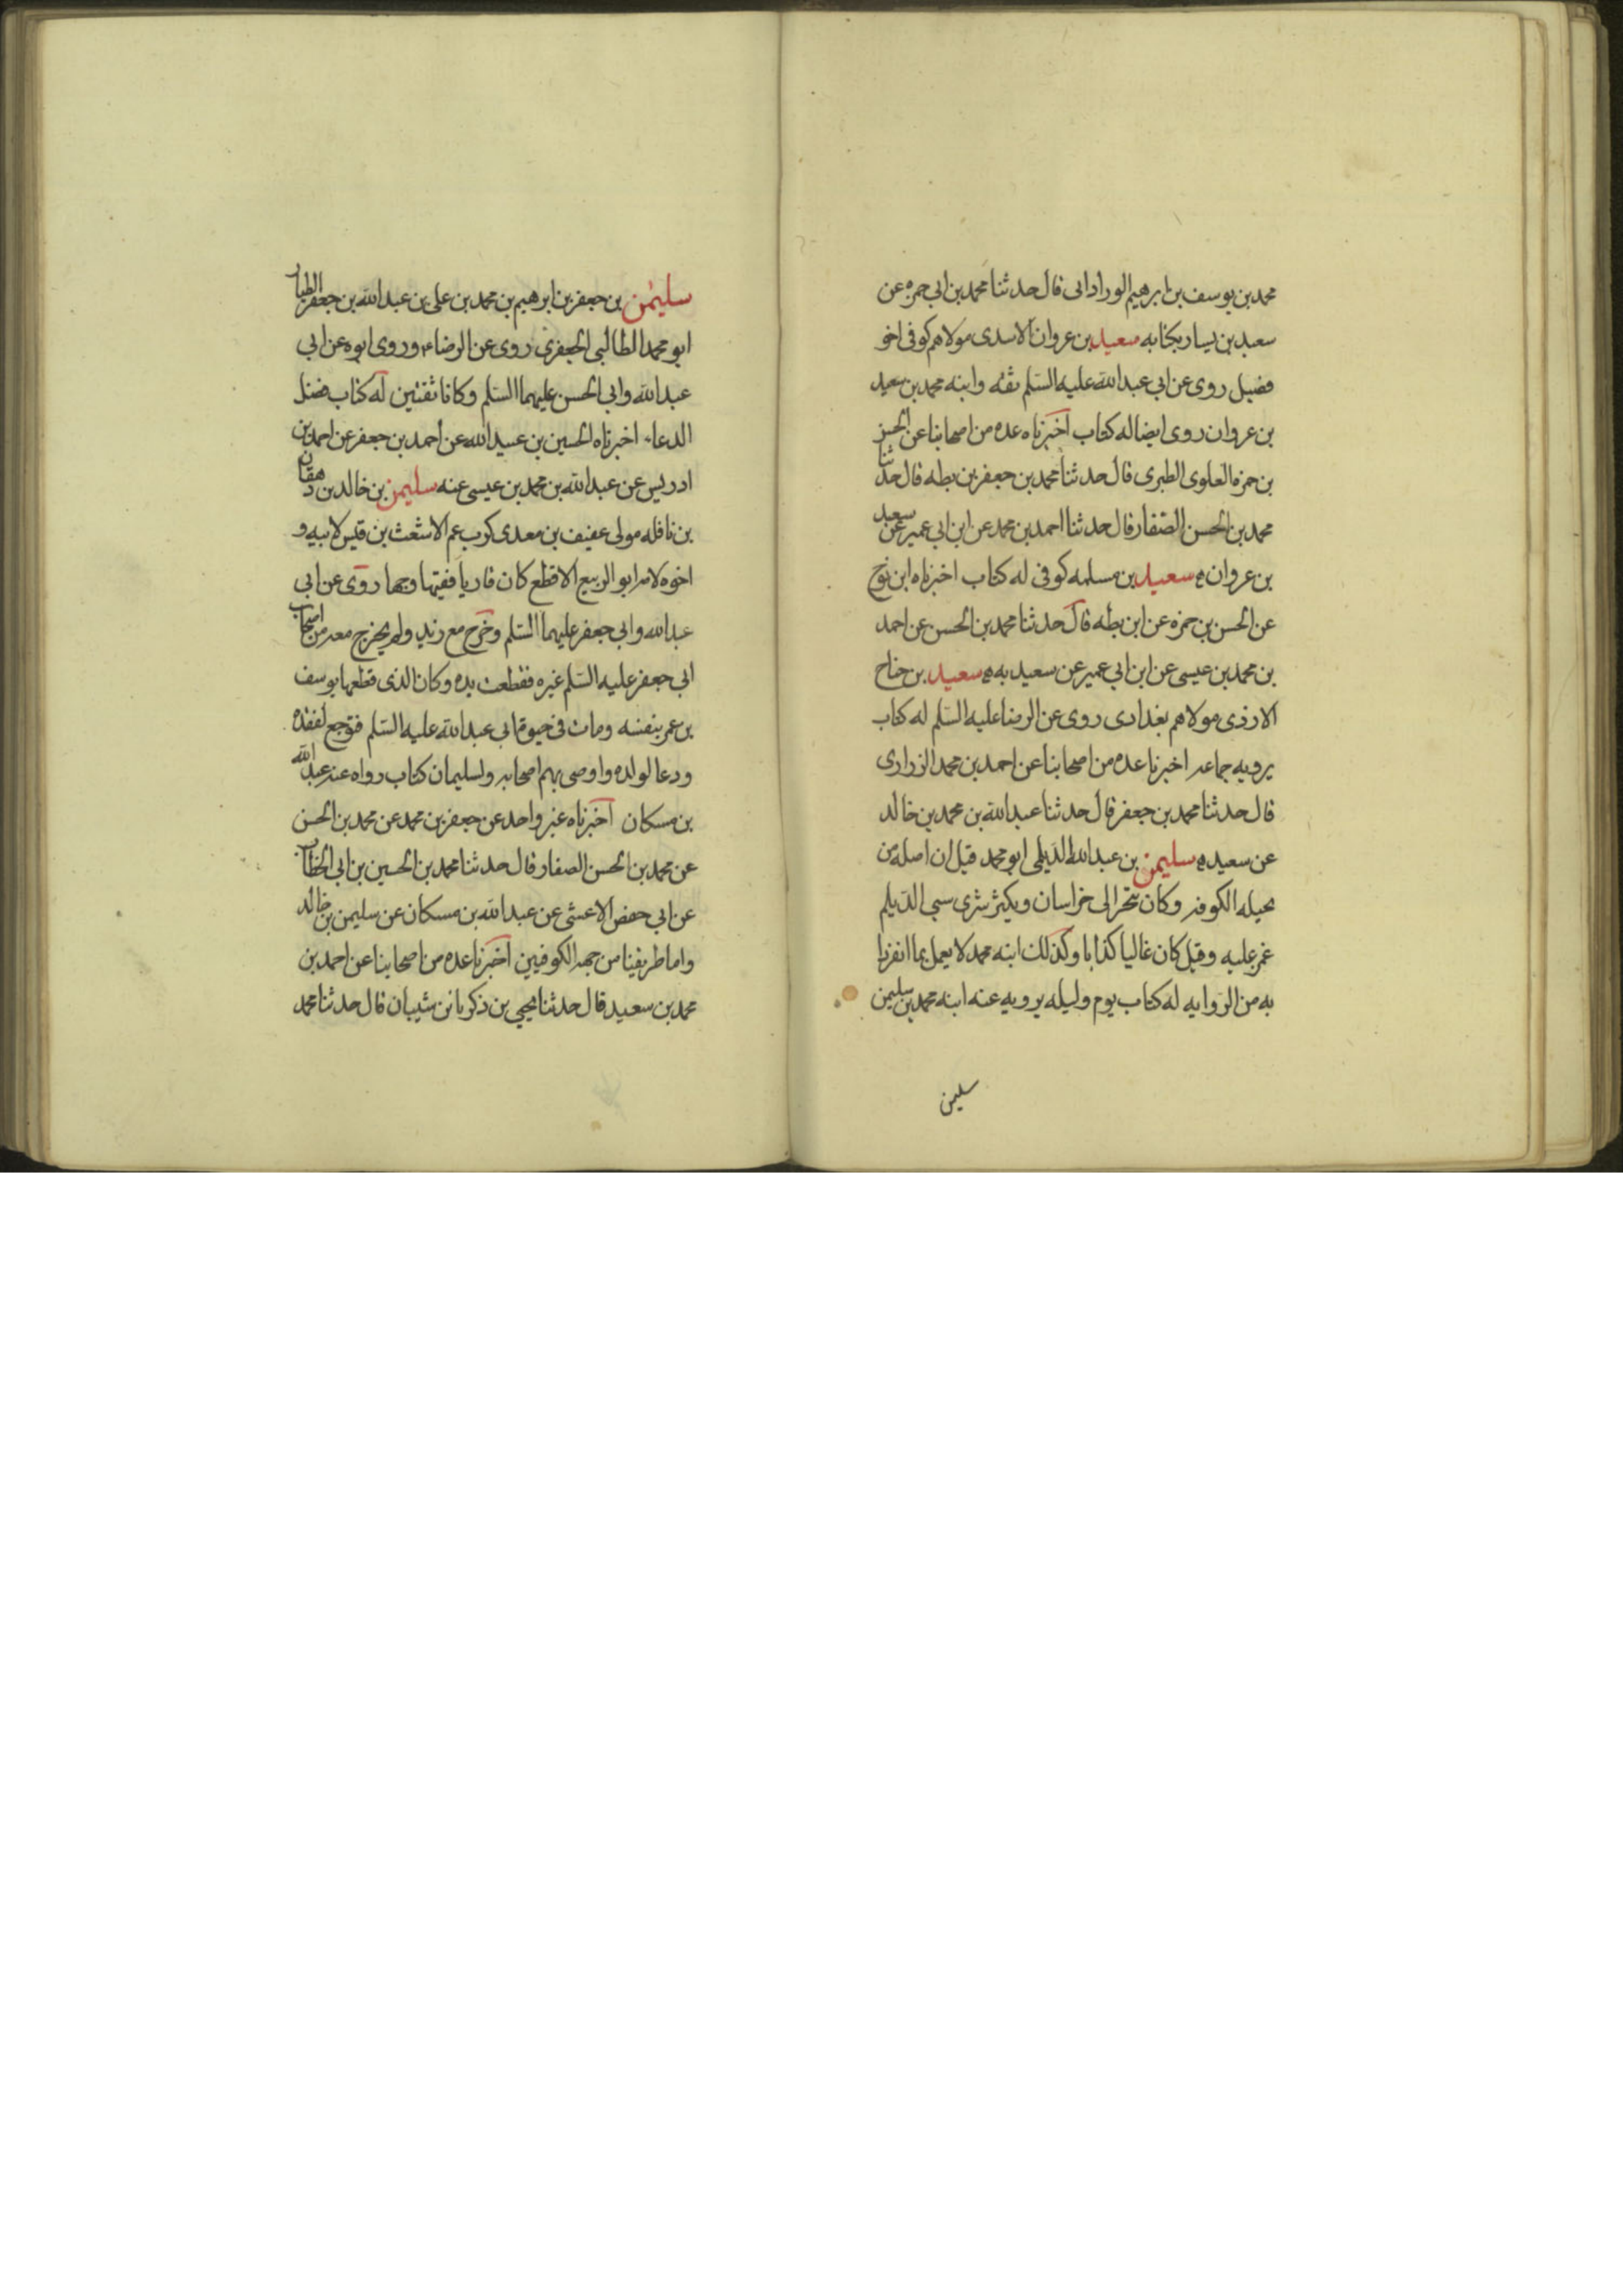 محمد بن يوسف بن ابرهيم الورادانى قال حدثنا محمد بن ابى حمزه عن
سعيد بن يسار بكتابه سعيد بن عزوان الاسدى مولاهم كوفى اخو
فضيل روى عن ابى عبدالله عليه السلم ثقه وابنه محمد بن سعيد
بن عزوان روى ايضا له كتاب اخبرناه عده من اصحابنا عن الحسن
بن حمزه العلوى الطبرى قال حدثنا محمد بن جعفر بن بطه قال حدثنا
محمد بن الحسن الصفار قال حدثنا احمد بن محمد عن ابن ابى عمير عن سعيد
بن عزوان ه سعيد بن مسلمه كوفى له كتاب اخبرناه ابن نوح
عن الحسن بن حمزه عن ابن بطه قال حدثنا محمد بن الحسن عن احمد
بن محمد بن عيسى عن ابن ابى عمير عن سعيد به ه سعيد بن جناح
الازدى مولاهم بغدادى روى عن الرضا عليه السلم له كتاب
يرويه جماعه اخبرنا عده من اصحابنا عن احمد بن محمد الزرارى
قال حدثنا محمد بن جعفر قال حدثنا عبدالله بن محمد بن خالد
عن سعيد ه سليمن بن عبدالله الديلمى ابو محمد قيل ان اصله من
بجيله الكوفه وكان يتجر الى خراسان ويكثر شرى سبى الديلم
غمز عليه وقيل كان غاليا كذابا وكذلك ابنه محمد لا يعمل بما انفردا
به من الروايه له كتاب يوم وليله يرويه عنه ابنه محمد بن سليمن
سليمن
سليمن بن جعفر بن ابرهيم بن محمد بن على بن عبدالله بن جعفر الطيار
ابو محمد الطالبى الجعفرى روى عن الرضاء وروى ابوه عن ابى
عبدالله وابى الحسن عليهما السلم وكانا ثقتين له كتاب فضل
الدعاء اخبرناه الحسين بن عبيدالله عن احمد بن جعفر عن احمد بن
ادريس عن عبدالله بن محمد بن عيسى عنه سليمن بن خالد بن دهقان
بن نافله مولى عفيف بن معدى كرب عم الاشعث بن قيس لابيه و
اخوه لامه ابو الربيع الاقطع كان قاريا فقيها وجها روى عن ابى
عبدالله وابى جعفر عليهما السلم وخرج مع زيد ولم يخرج معه من اصحاب
ابى جعفر عليه السلم غيره فقطعت يده وكان الذى قطعها يوسف
بن عمر بنفسه ومات فى حيوة ابى عبدالله عليه السلم فتوجع لفقده
ودعا لولده واوصى بهم اصحابه ولسليمان كتاب رواه عنه عبدالله
بن مسكان اخبرناه غير واحد عن جعفر بن محمد عن محمد بن الحسن
عن محمد بن الحسن الصفار قال حدثنا محمد بن الحسين بن ابى الخطاب
عن ابى حفص الاعشى عن عبدالله بن مسكان عن سليمن بن خالد
واما طريقنا من جهه الكوفيين اخبرنا عده من اصحابنا عن احمد بن
محمد بن سعيد قال حدثنا يحيى بن زكريا بن شيبان قال حدثنا محمد